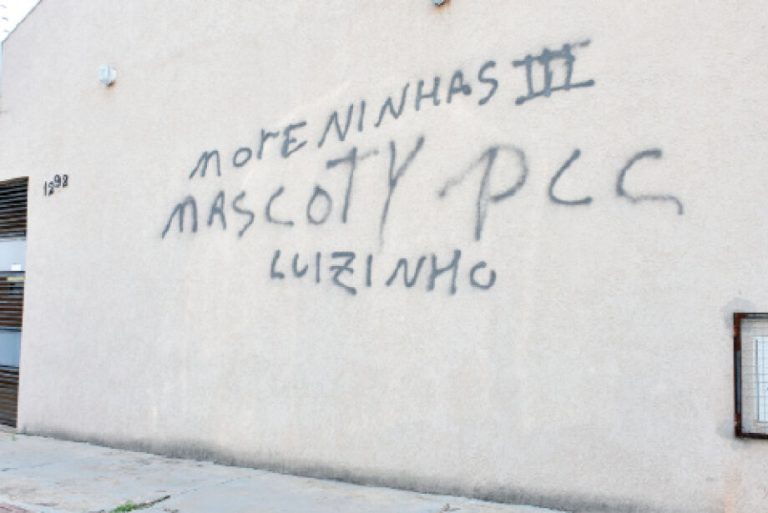 morENINHAS III
1298
MASCOTY PCC
LUIZINHO